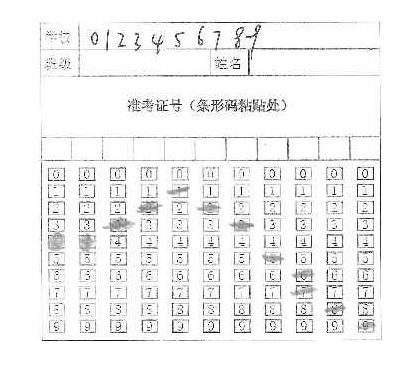 学校 0123456789
班级 姓名
准考证号（条形码粘贴处）
0 0 0 0 0 0 0 0 0 0 0
1 1 1 1 1 1 1 1 1 1
2 2 2 2 2 2 2 2 2
3 3 3 3 3 3 3 3 3
4 4 4 4 4 4 4 4 4
5 5 5 5 5 5 5 5 5 5
6 6 6 6 6 6 6 6 6 6
7 7 7 7 7 7 7 7 7 7
8 8 8 8 8 8 8 8 8 8
9 9 9 9 9 9 9 9 9 9